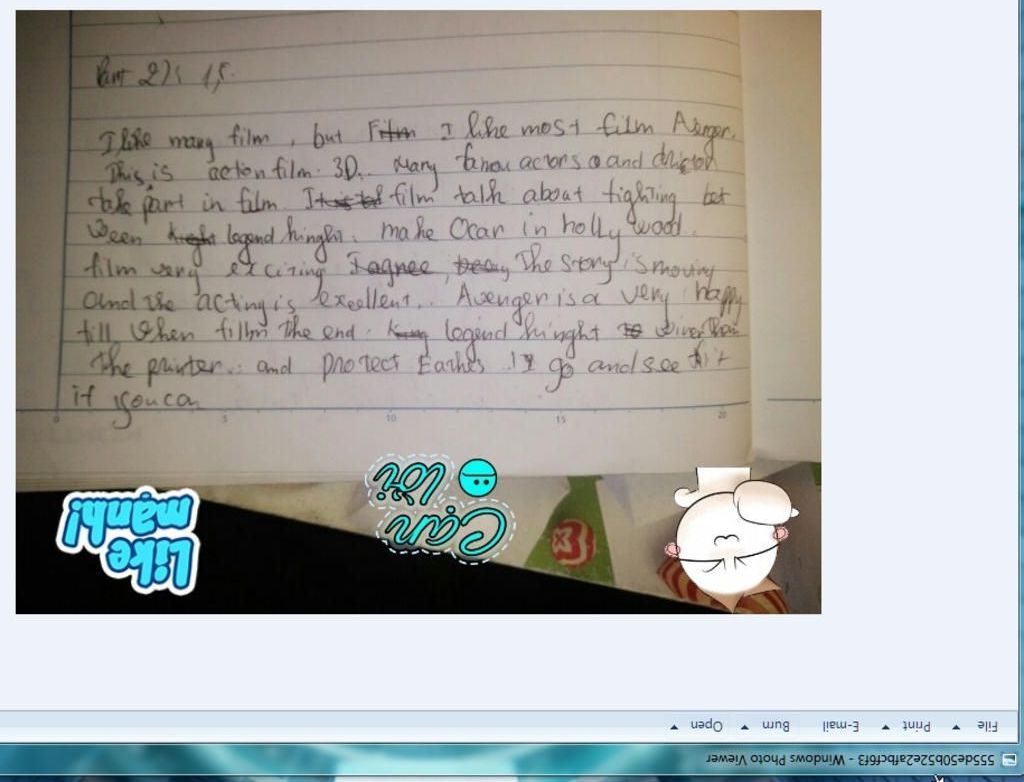 Part 2): 1,5.
I like many film, but Film I like most film Avenger.
This is action film 3D. Many famou actors and
take part in film. film talk about fighting bet
ween Knight legend hinght. make Ocar in holly wood.
film very exciring I agnee, The story is moving
and the acting is excellent. Avenger is a very happy
till When fillm The end. King legend hinght to winer than
The printer. and protect Earths. go and see it
if you can
0 5 10 15 20
Cạn
lời
Like
mạnh!
File Print E-mail Burn Open
555de50b52e2afbcf6f3 - Windows Photo Viewer